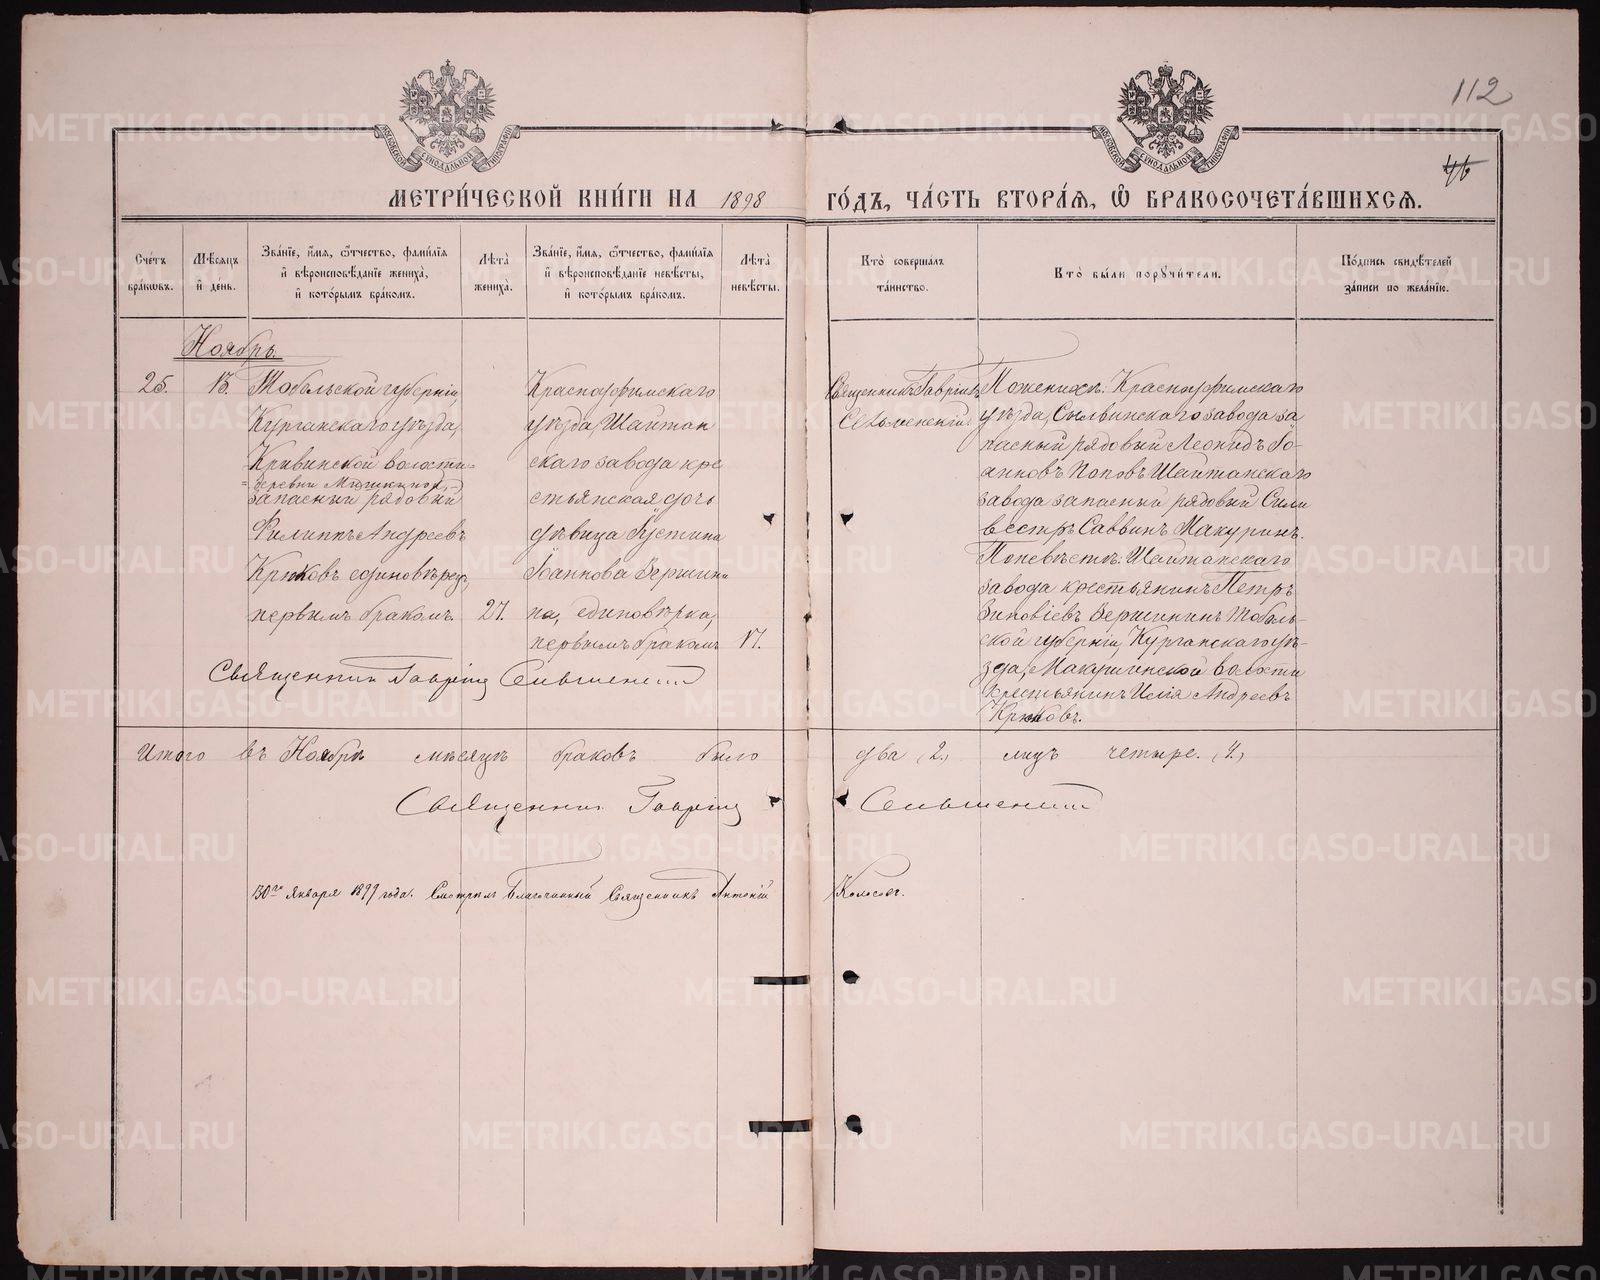 112
46
МЕТРИ́ЧЕСКОЙ КНИ́ГИ НА 1898 ГО́ДЪ, ЧА́СТЬ ВТОРА́Я, Ѡ҆ БРАКОСОЧЕТА́ВШИХСЯ.
МОСКОВСКОЙ СУНОДАЛЬНОЙ ТИПОГРАФІИ
МОСКОВСКОЙ СУНОДАЛЬНОЙ ТИПОГРАФІИ
Сче́тъ
бра́кѡвъ.
Мѣ́сяцъ
и҆ де́нь.
Зва́нїе, и҆́мя, ѻ҆́тчество, фами́лїя
и҆ вѣроисповѣ́данїе жениха̀,
и҆ кото́рымъ бра́комъ.
Лѣ́та
жениха̀.
Зва́нїе, и҆́мя, ѻ҆́тчество, фами́лїя
и҆ вѣроисповѣ́данїе невѣ́сты,
и҆ кото́рымъ бра́комъ.
Лѣ́та
невѣ́сты.
Кто̀ соверша́лъ
та́инство.
Кто̀ бы́ли поручи́тели.
По́дпись свидѣ́телей
за́писи по жела́нїю.
Ноябрь.
25.
Тобольской губерніи,
Курганскаго уѣзда,
Кривинской волости
деревни
запасный рядовый
Филиппъ Андреевъ
Крюковъ единовѣрецъ,
первымъ бракомъ.
27.
Красноуфимскаго
уѣзда, Шайтан
скаго завода кре
стьянская дочь
дѣвица Іустина
Іоаннова Вершини
на, единовѣрка,
первымъ бракомъ
17.
Священникъ Гавріилъ
Сельменскій.
По женихѣ: Красноуфимскаго
уѣзда, Сылвинскаго завода за
пасный рядовый Леонидъ Іо-
анновъ Поповъ Шайтанскаго
завода запасный рядовый Сили
вестръ Саввинъ Макуринъ.
По невѣстѣ: Шайтанскаго
завода крестьянинъ Петръ
Зиновіевъ Вершининъ Тоболь-
ской губерніи, Курганскаго уѣ-
зда, Макушинской волости
крестьянинъ Илія Андреевъ
Крюковъ.
Священникъ Гавріилъ Сельменскій
Итого въ Ноябрѣ мѣсяцѣ браковъ было два (2.) лицъ четыре. (4.)
Священникъ Гавріилъ Сельменскій
30го Января 1899 года. Смотрѣлъ Благочинный Священникъ Антоній Колосовъ.
METRIKI.GASO-URAL.RU